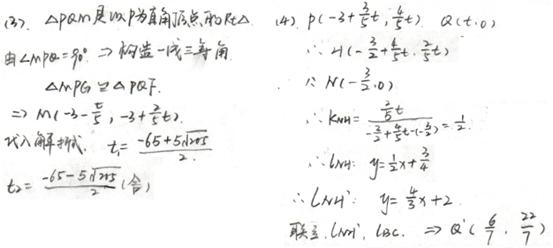 (3). △PQM是以P为直角顶点的Rt△
由∠MPQ=90° ⇒ 构造一线三等角
△MPG≌△PQF.
⇒ M(-3-t/5, -3+7/5t).
代入解析式. t₁=(-65+5√205)/2.
t₂=(-65-5√205)/2 (舍)
(4). P(-3+3/5t, 4/5t) Q(t,0)
∴ H(-3/2+4/5t, 2/5t)
∵ N(-3/2,0)
∴ K_NH=(2/5t)/(-3/2+4/5t-(-3/2))=1/2.
∴ L_NH: y=1/2x+3/4
∴ L_NH': y=4/3x+2.
联立 L_NH', L_BC. ⇒ Q'(6/7, 22/7)